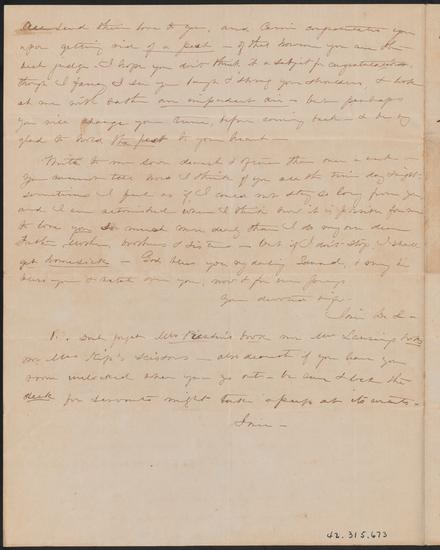 All send their love to you, and Carrie congratulates you
upon getting rid of a pest - of that however you are the
best judge. I hope you don't think it a subject for congratulation,
though I fancy I see you laugh & shrug your shoulders, & look
at me with rather an impudent air - but perhaps
you will change your tune, before coming back - & be very
glad to hold the pest to your heart -
Write to me soon dearest & oftener than once a week -
You cannot tell how I think of you all the time day & night -
sometimes I feel as if I could not stay so long from you
and I am astonished when I think how it is possible for me
to love you so much more dearly than I do my own dear
Father, Mother, brothers & sisters - but if I don't stop, I shall
get homesick - God bless you my darling husband, & may he
bless you & watch over you, now & for ever
Your devoted wife -
P.S. Don't forget Mrs book nor Mr Lansing's books
nor Mrs Kip's scissors - also dearest if you leave your
room unlocked when you go out - be sure & lock the
desk for servants might take a peep at its contents -
42.315.673